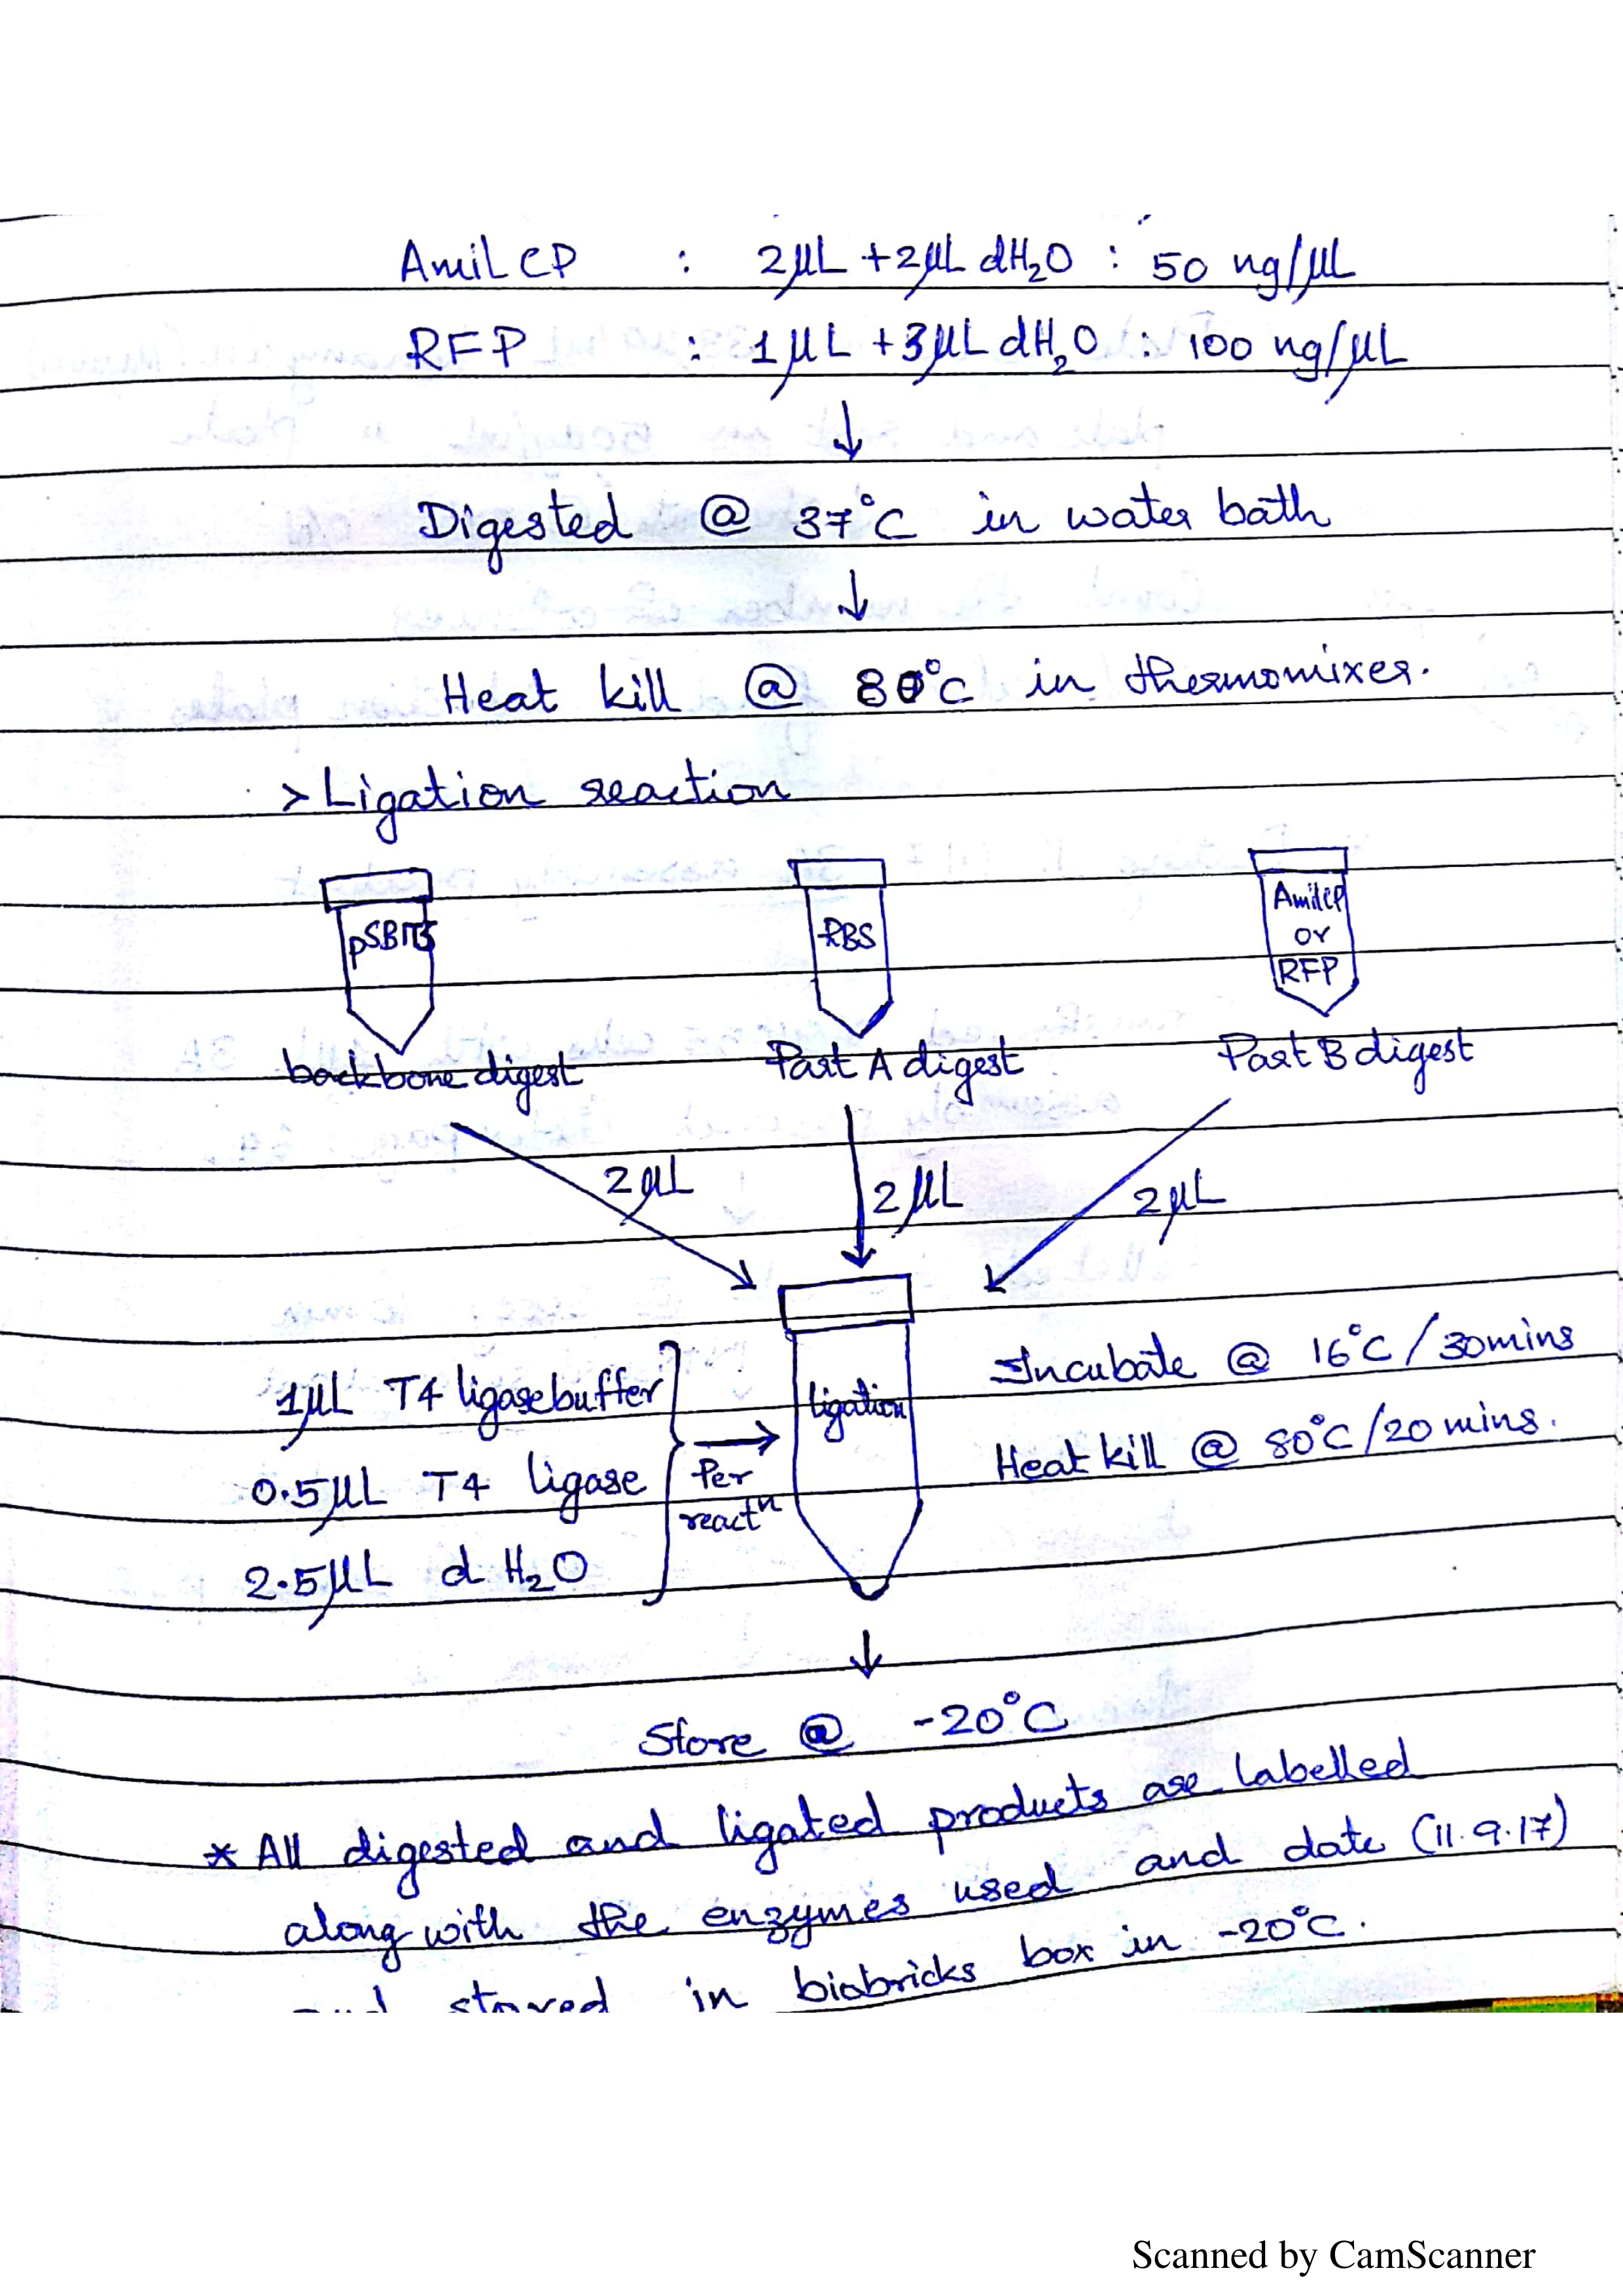 AmilCP : 2µL + 2µL dH₂O : 50 ng/µL
RFP : 1µL + 3µL dH₂O : 100 ng/µL
↓
Digested @ 37°C in water bath
↓
Heat kill @ 80°C in thermomixer.
> Ligation reaction
pSB1T3
RBS
AmilCP
or
RFP
backbone digest
Part A digest
Part B digest
2µL
2µL
2µL
1µL T4 ligase buffer
0.5µL T4 ligase
2.5µL d H₂O
Per
reactⁿ
ligation
Incubate @ 16°C / 30mins
Heat kill @ 80°C / 20 mins.
↓
Store @ -20°C
* All digested and ligated products are labelled
along with the enzymes used and date (11.9.17)
and stored in biobricks box in -20°C.
Scanned by CamScanner